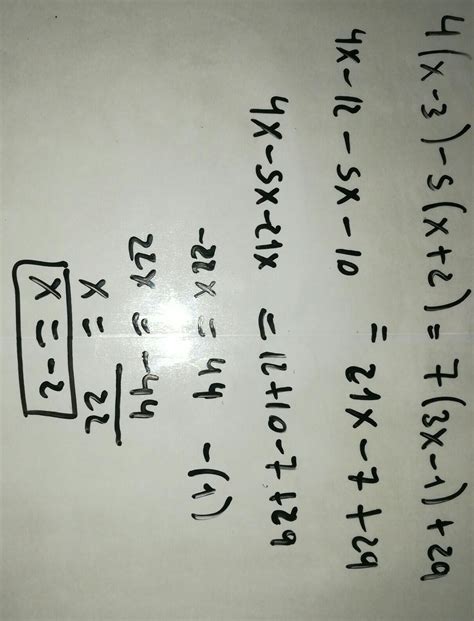 4(x-3)-5(x+2) = 7(3x-1)+29
4x-12-5x-10 = 21x-7+29
4x-5x-21x = 12+10-7+29
-22x = 44 -(1)
22x = -44
x = 22
x = -2